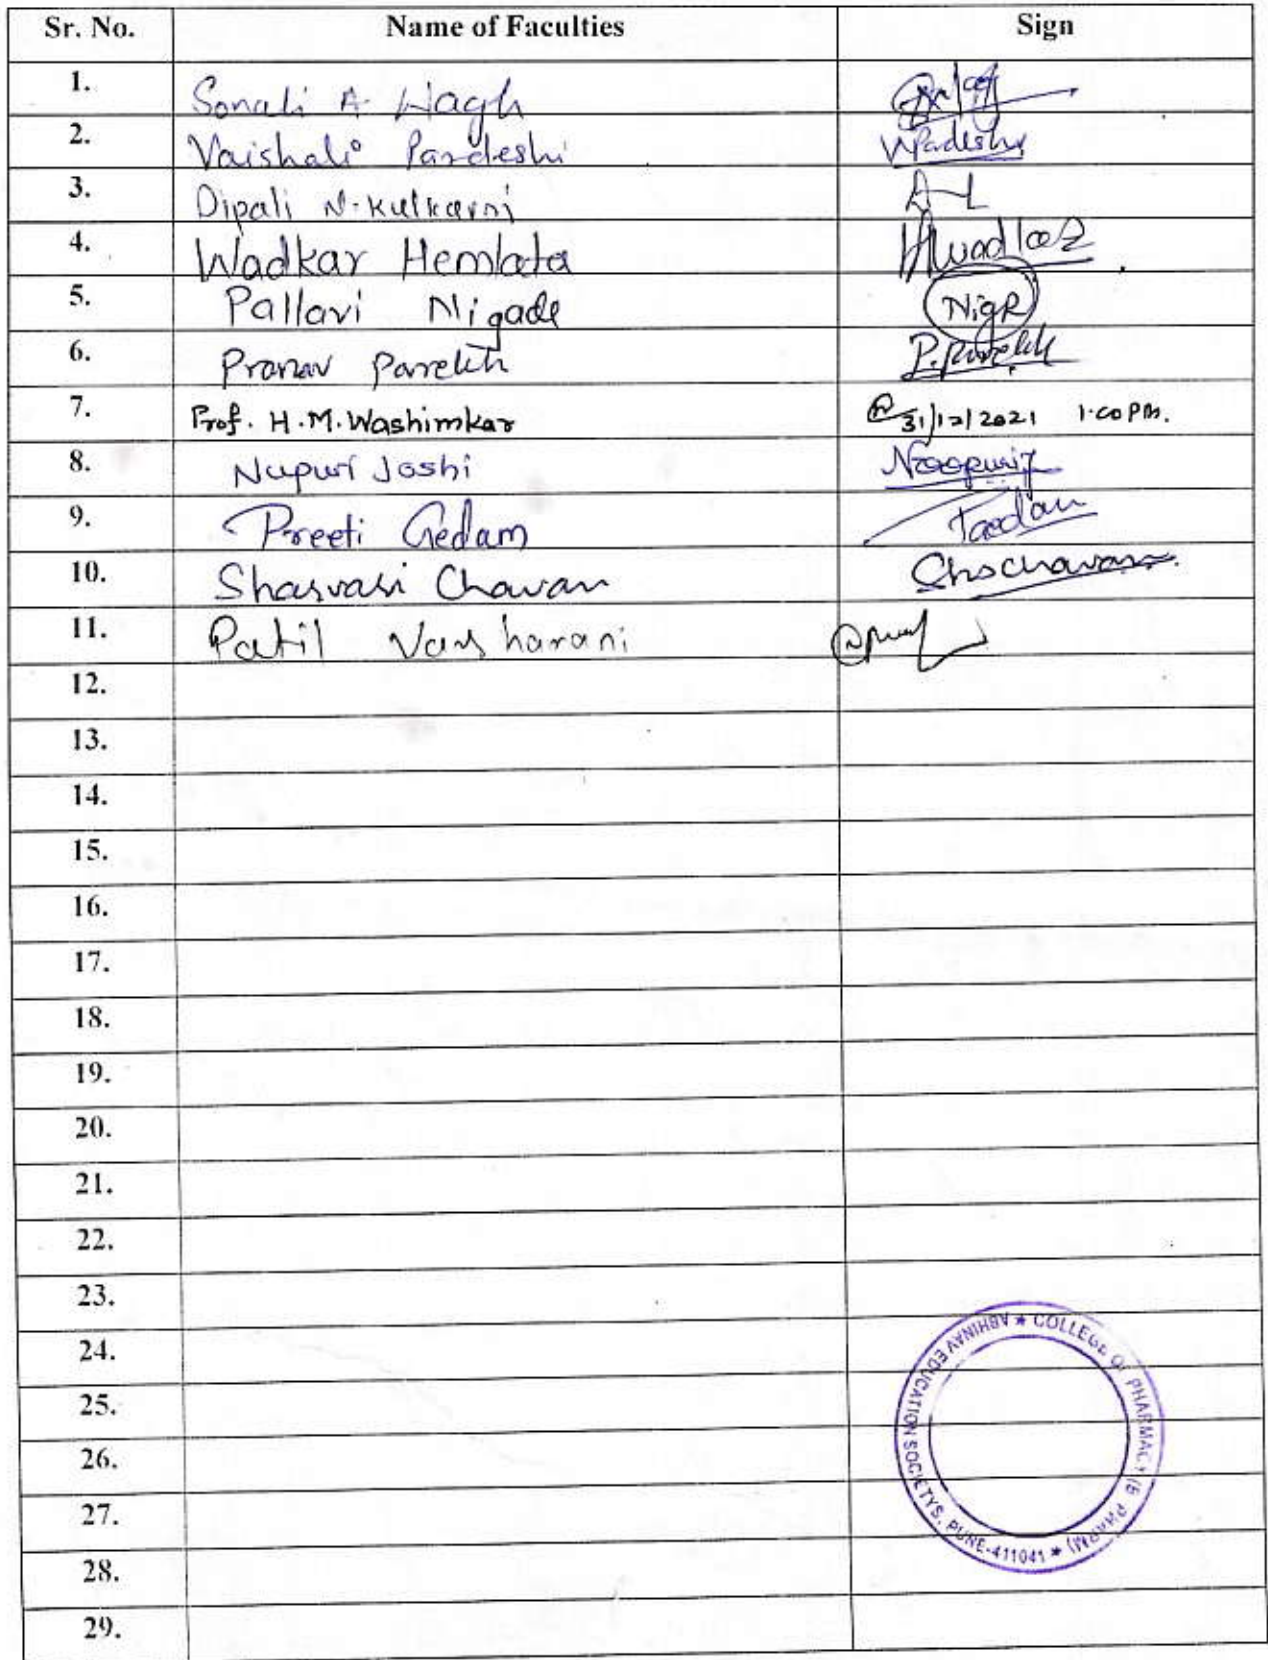 Sr. No. Name of Faculties Sign
1. Sonali A Wagh
2. Vaishali Pardeshi VPadeshi
3. Dipali N. Kulkarni
4. Wadkar Hemlata
5. Pallavi Nigade
6. Pranav Parekh P. Parekh
7. Prof. H.M. Washimkar 31/12/2021 1.00 PM.
8. Nupur Joshi
9. Preeti Gedam
10. Sharvari Chavan
11. Patil Varsharani
12.
13.
14.
15.
16.
17.
18.
19.
20.
21.
22.
23.
24.
25.
26.
27.
28.
29.
ABHINAV EDUCATION SOCIETYS, PUNE-411041 * COLLEGE OF PHARMACY (B PHARM) *